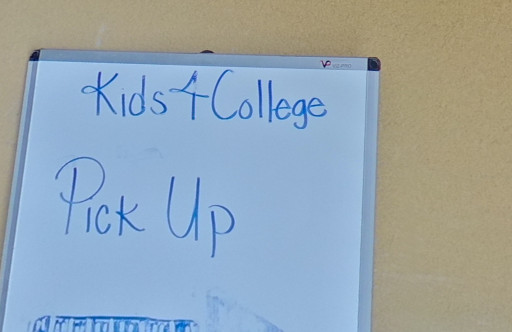 Kids 4 College
Pick Up